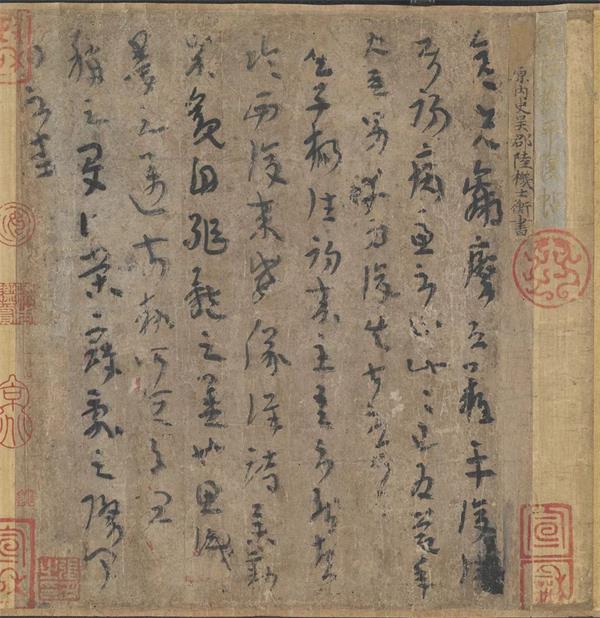 原內史吳郡陸機士衡書
彥先羸瘵恐難平復往屬
初病慮不止此此已為慶承
使唯男幸為復失前憂耳
吳子楊往初來主吾不能盡
臨西復來威儀詳跱舉動
成觀自軀體之美也思識
量之邁前勢所恒有宜
稱之夏伯榮寇亂之際聞
問不悉
宣和